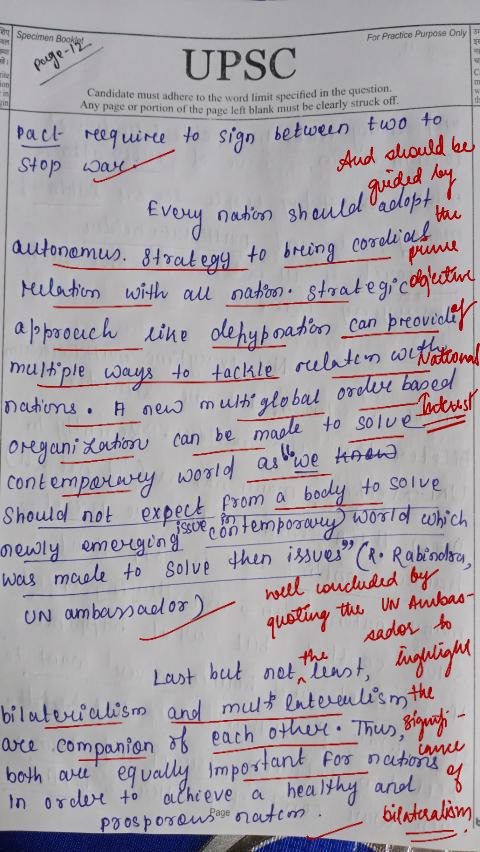 Specimen Booklet
For Practice Purpose Only
page-12
UPSC
Candidate must adhere to the word limit specified in the question.
Any page or portion of the page left blank must be clearly struck off.
pact reequiree to sign between two to
stop war.
And should be
guided by
the
prime
objective
of
National
Interest
Every nation should adopt
autonomus. strategy to bring cordial
relation with all nation. strategic
approach like dehypnation can preovide
multiple ways to tackle relatcn with
nations. A new multiglobal order based
oregani zation can be made to solve
contemporary world as "we know
should not expect from a body to solve
newly emerging issue in contemporary) world which
was made to solve then issues" (R. Rabindra,
UN ambassador)
well concluded by
quoting the UN Ambas-
sador to
highlight
the
signifi-
cance
of
bilateralism.
Last but not the least,
bilaterialism and multi lateralism
are companion of each other. Thus,
both are equally important for nations
In order to achieve a healthy and
prosporous natcn.
Page